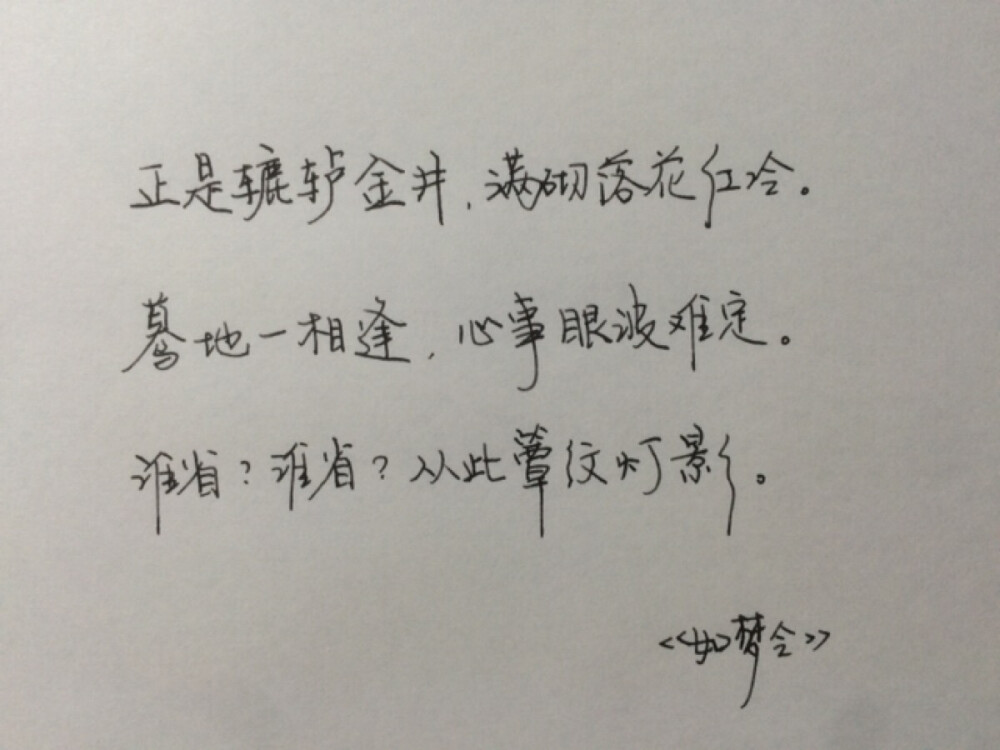 正是辘轳金井，满砌落花红冷。
蓦地一相逢，心事眼波难定。
谁省？谁省？从此簟纹灯影。
《如梦令》